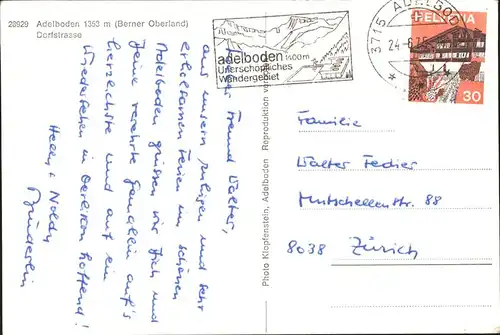 28929 Adelboden 1353 m (Berner Oberland)
Dorfstrasse
adelboden 1400m
Unerschöpfliches
Wandergebiet
3715 ADELBODEN
24-6.75
HELVETIA
30
Photo Klopfenstein, Adelboden Reproduktion
Lieber Freund Walter,
aus unsern ruhigen und sehr
erholsamen Ferien im schönen
Adelboden grüssen wir Dich und
Deine verehrte Gemahlin auf's
herzlichste und auf ein
Wiedersehen in Oerlikon hoffend!
Helly & Noldy
Bünderlin
Familie
Walter
88
8038 Zürich